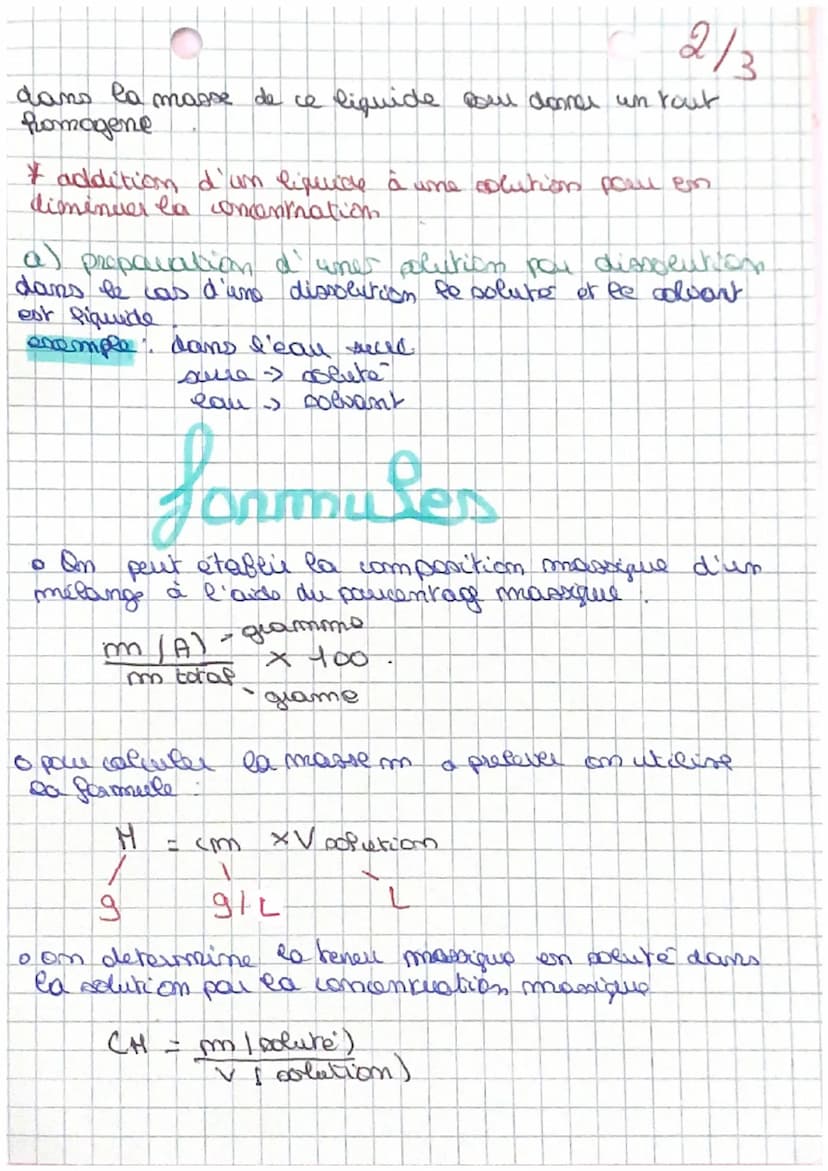 2/3
dans la masse de ce liquide pour donner un tout
homogene
* addition d'un liquide à une solution pour en
diminuer la concentration
a) preparation d'une solution par dissolution
dans le cas d'une dissolution le soluté et le solvant
est liquide
exemple : dans l'eau sucré
sucre -> soluté
eau -> solvant
formules
• On peut établir la composition massique d'un
mélange à l'aide du pourcentage massique.
m (A) - gramme
x 100.
m total - grame
• pour calculer la masse m a prelever on utilise
la formule :
M = cm x V solution
g g/L L
• on determine la teneur massique en soluté dans
la solution par la concentration massique
CM = m (soluté)
V (solution)